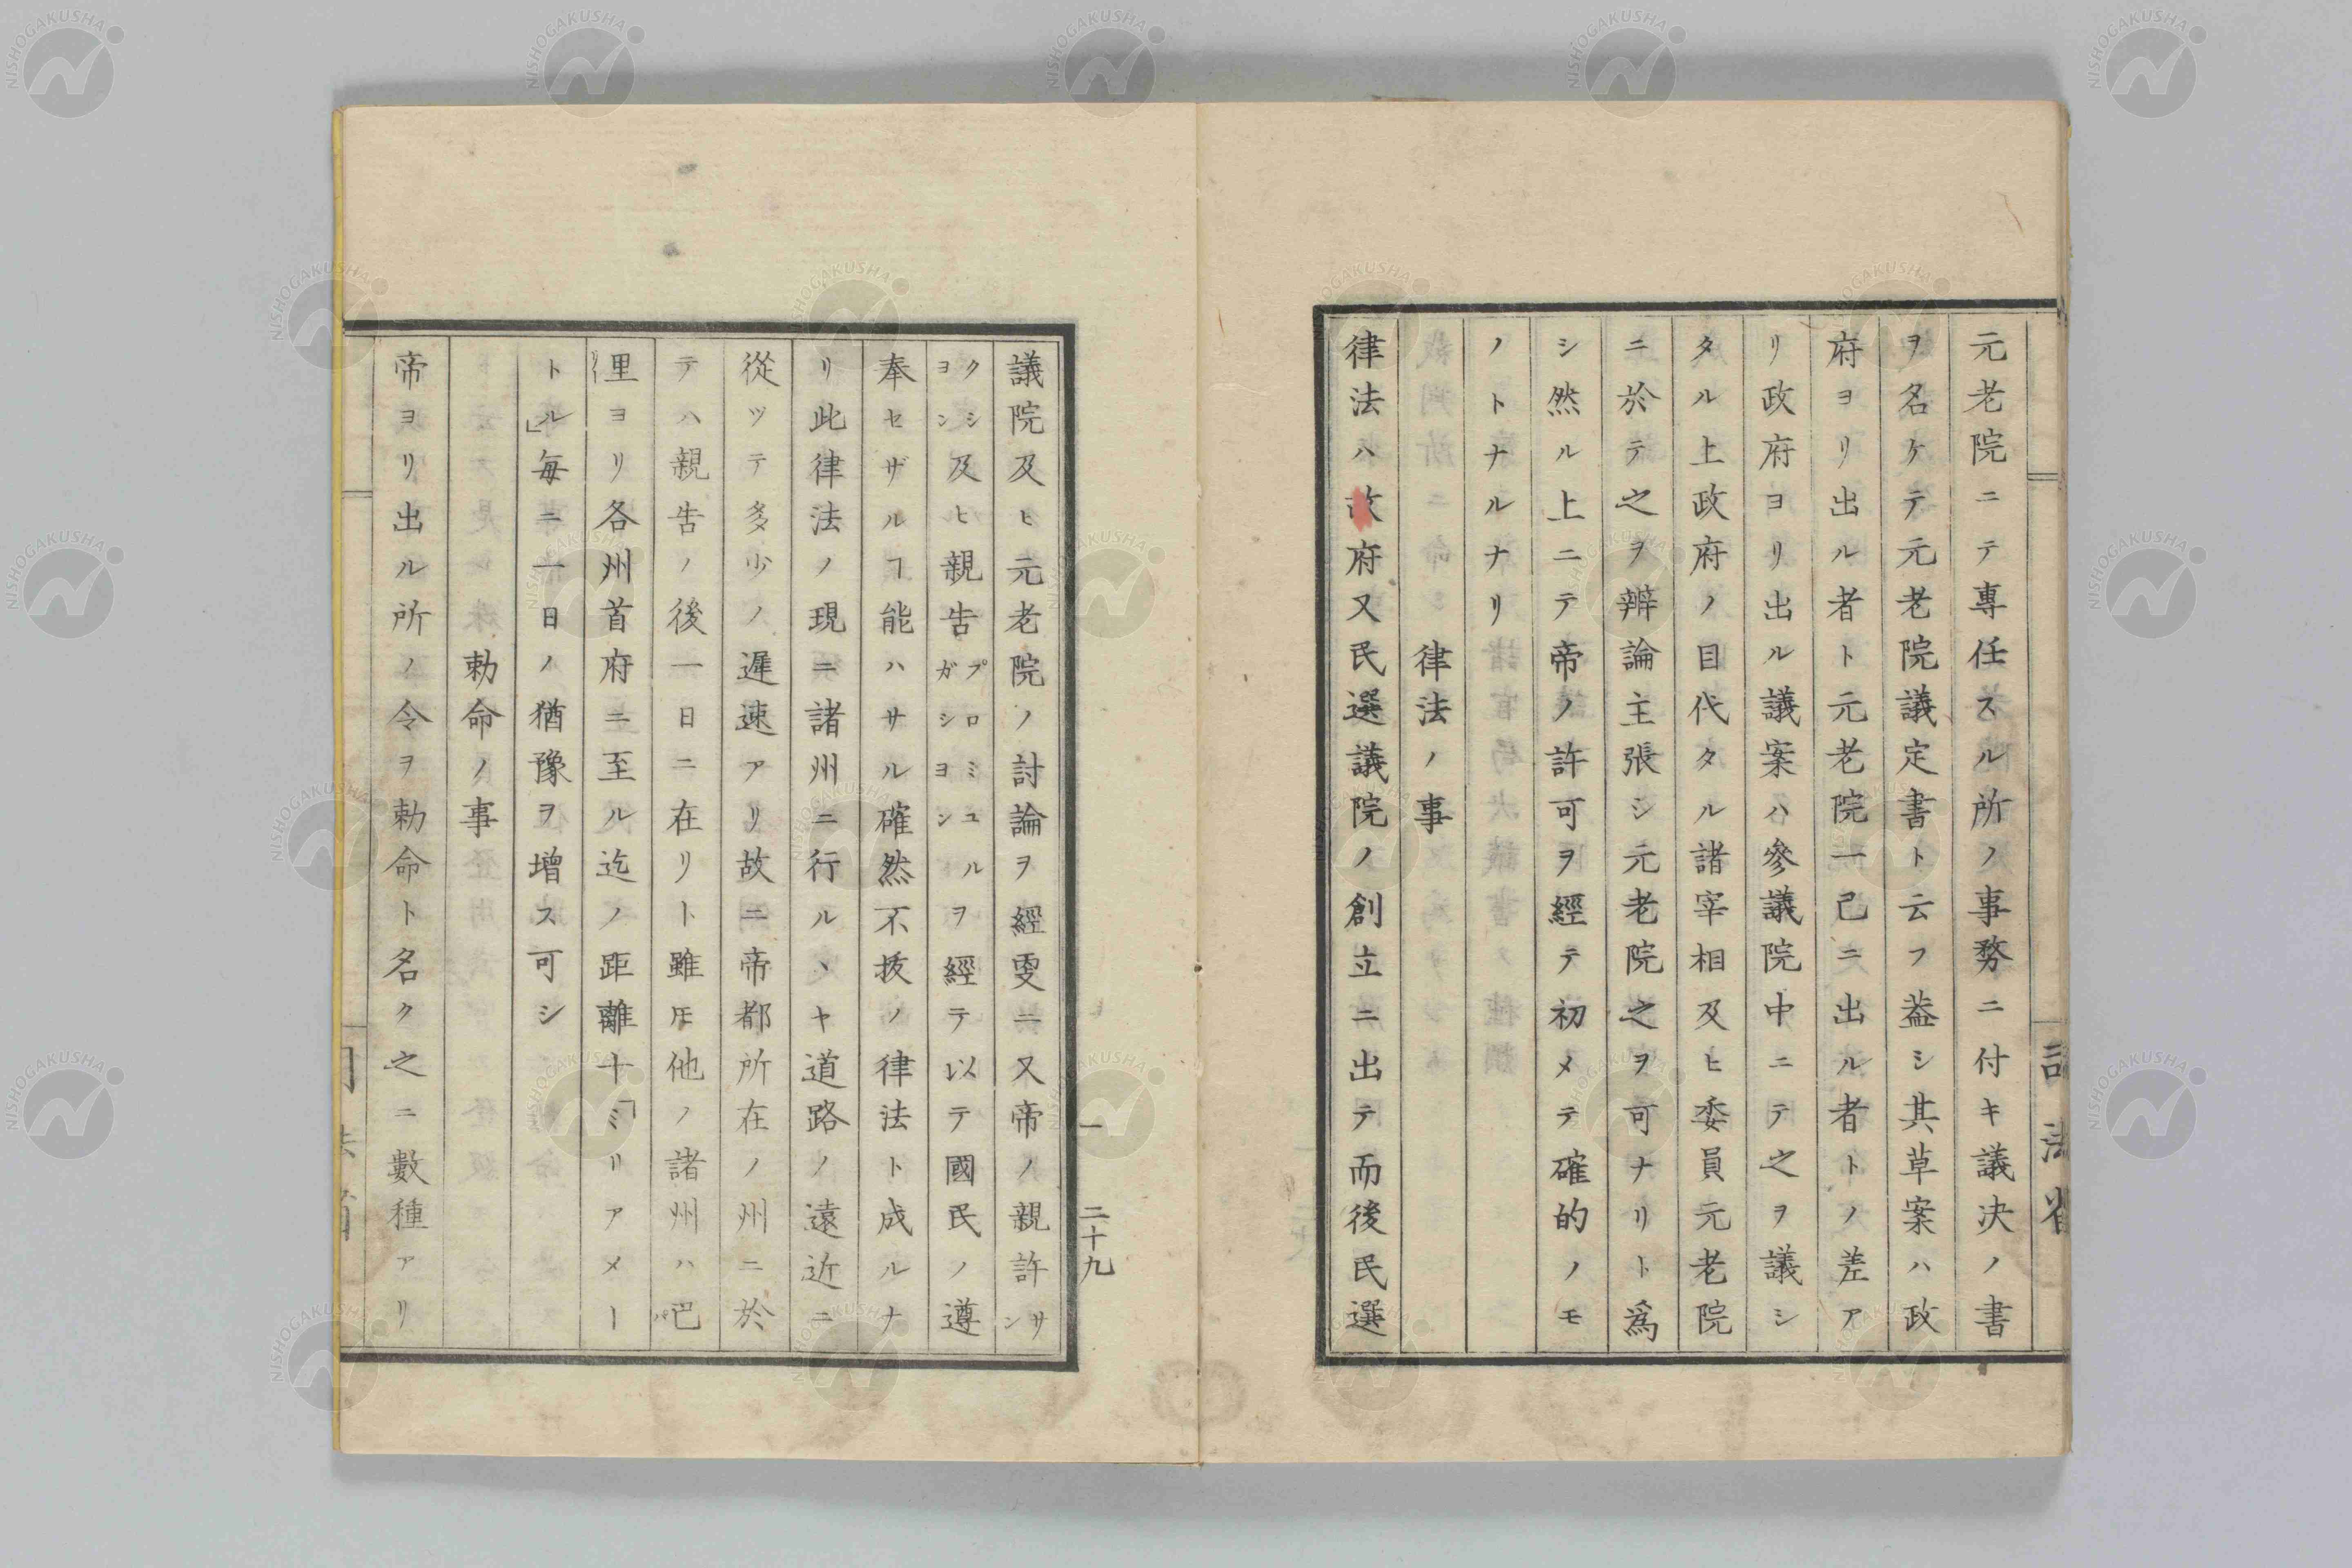 元老院ニテ專任スル所ノ事務ニ付キ議决ノ書
ヲ名ケテ元老院議定書ト云フ蓋シ其草案ハ政
府ヨリ出ル者ト元老院一己ニ出ル者トノ差ア
リ政府ヨリ出ル議案ハ參議院中ニテ之ヲ議シ
タル上政府ノ目代タル諸宰相及ヒ委員元老院
ニ於テ之ヲ辨論主張シ元老院之ヲ可ナリト爲
シ然ル上ニテ帝ノ許可ヲ經テ初メテ確的ノモ
ノトナルナリ
律法ノ事
律法ハ政府又民選議院ノ創立ニ出テ而後民選
議院及ヒ元老院ノ討論ヲ經雯ニ又帝ノ親許サンクシヨン
及ヒ親告プロミユルガシヨンヲ經テ以テ國民ノ遵
奉セザルヿ能ハサル確然不拔ノ律法ト成ルナ
リ此律法ノ現ニ諸州ニ行ルヽヤ道路ノ遠近ニ
從ツテ多少ノ遲速アリ故ニ帝都所在ノ州ニ於
テハ親告ノ後一日ニ在リト雖𪜈他ノ諸州ハ巴パ
里リーヨリ各州首府ニ至ル迄ノ距離十「ミリアメー
トル」每ニ一日ノ猶豫ヲ增ス可シ
勅命ノ事
帝ヨリ出ル所ノ令ヲ勅命ト名ク之ニ數種アリ
一 二十九
NISHOGAKUSHA